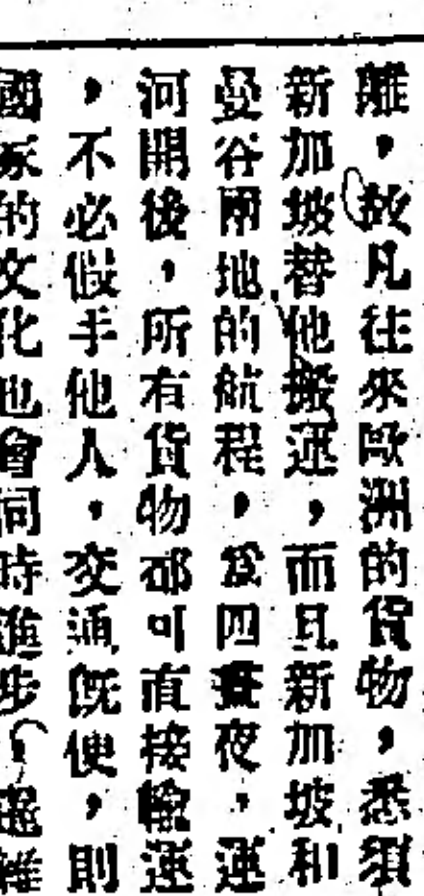 離，故凡往來歐洲的貨物，悉須
新加坡替他搬運，而且新加坡和
曼谷兩地的航程，爲四晝夜，運
河開後，所有貨物都可直接輸運
，不必假手他人，交通旣便，則
國家的文化也會同時進步，這雜